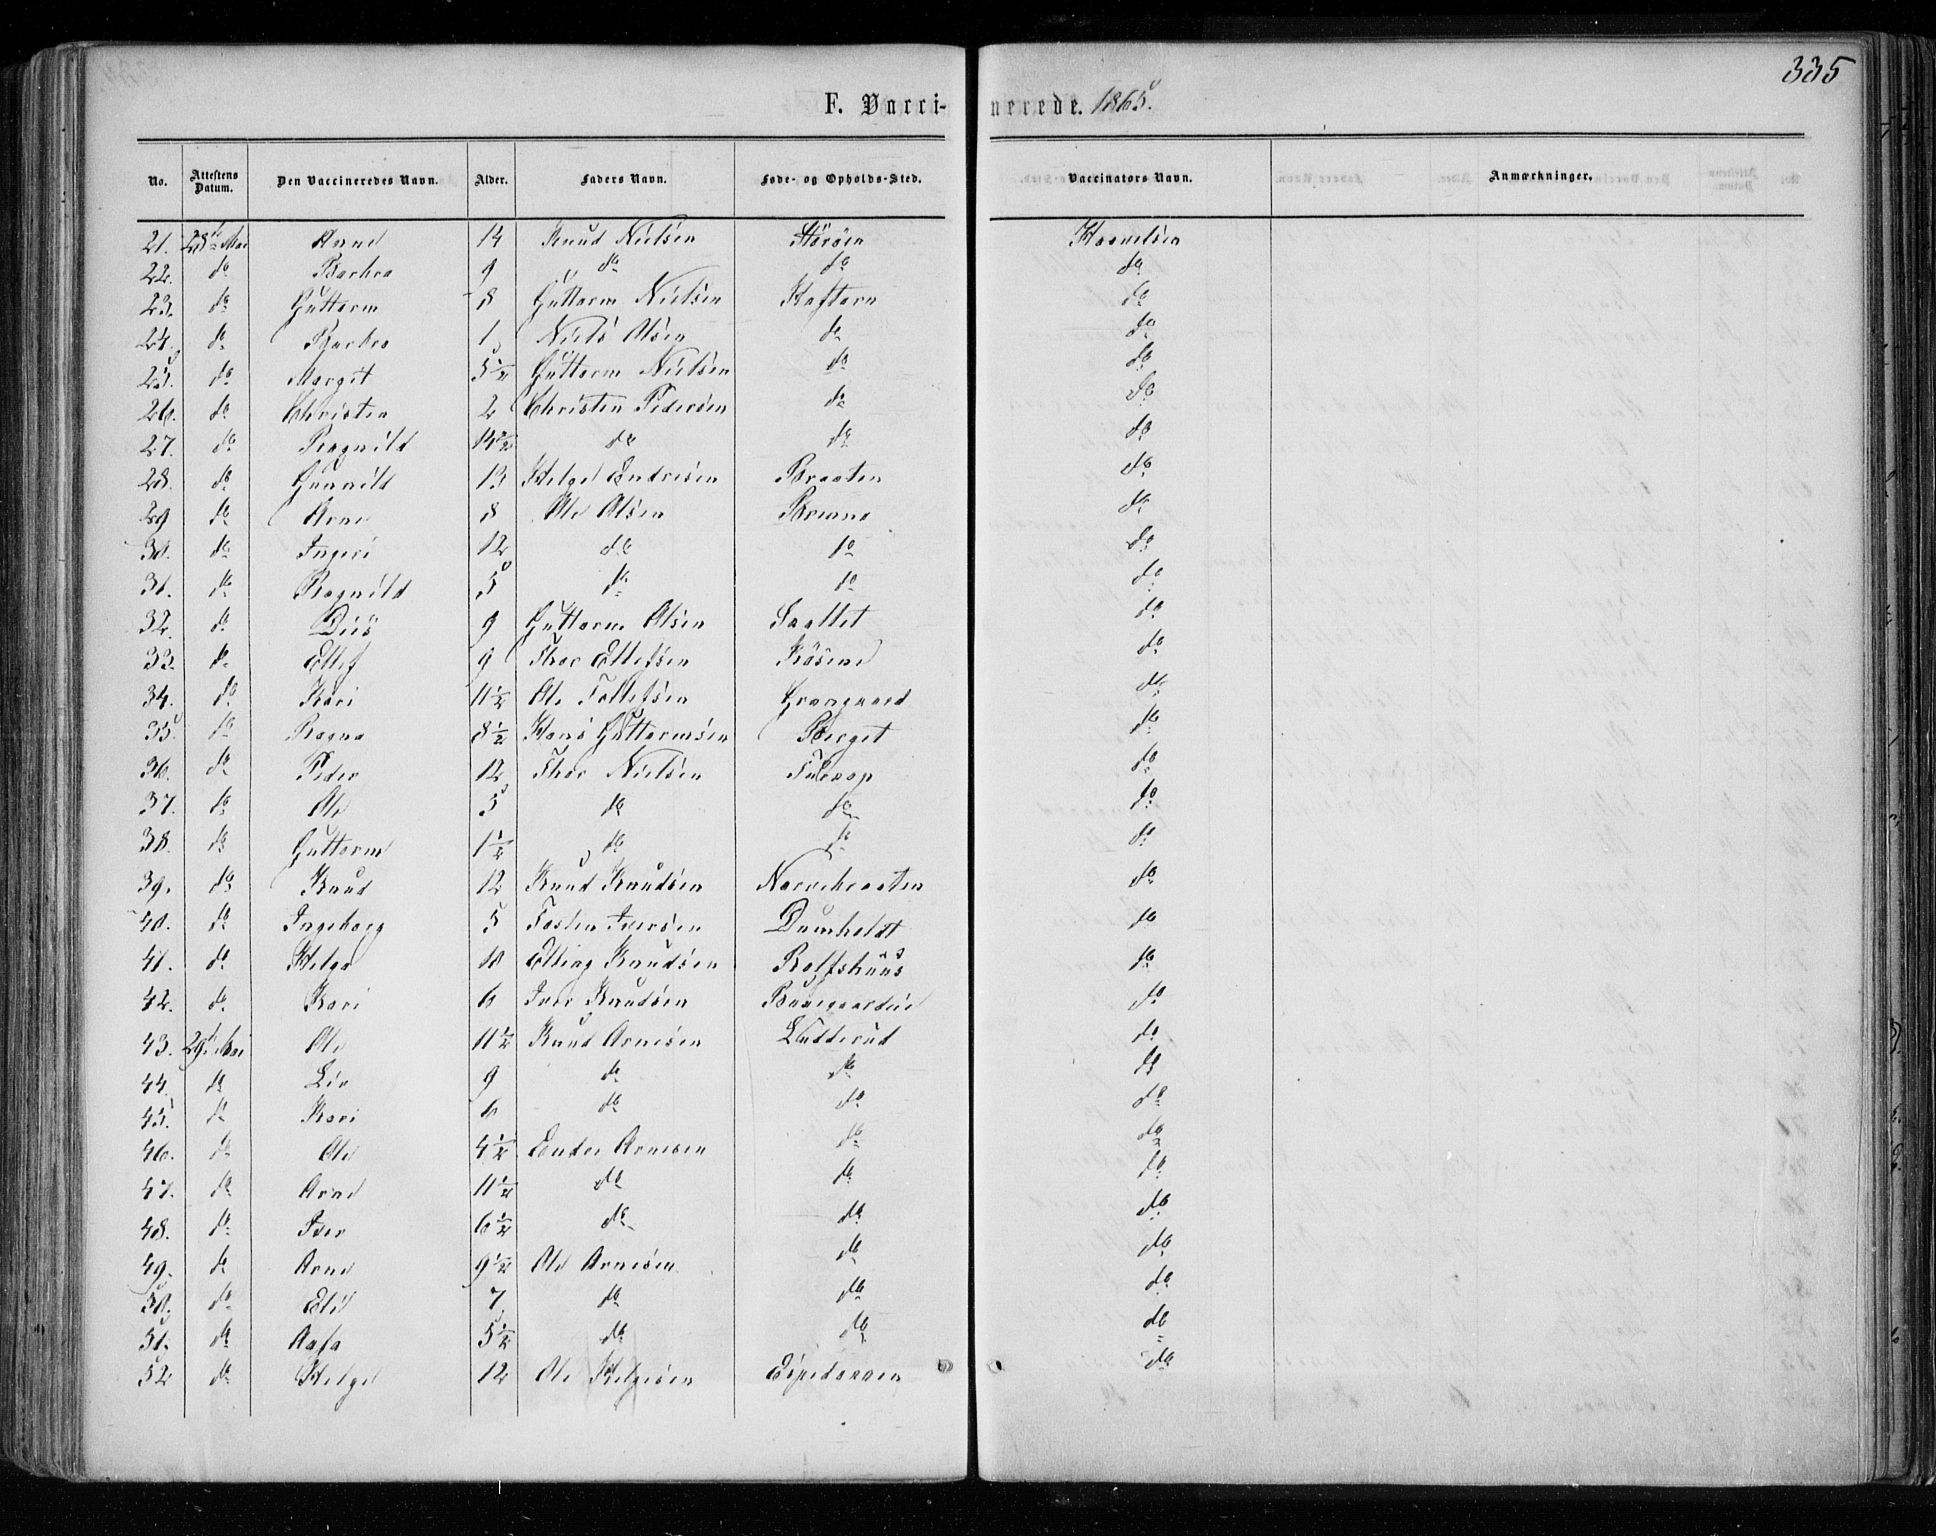 335
F. Vacci- nerede. 1865.
No. Attestens Datum. Den Vaccineredes Navn. Alder. Faders Navn. Føde- og Opholds-Sted. Vaccinators Navn. Anmærkninger.
21. 28de Mai Anne 14 Knud Nielsen Störöen
22. do Barbra 9 do do do
23. do Guttorm 8 Guttorm Nielsen do
24. do Barbra 1 Niels Olsen do do
25. do Margit 5½ Guttorm Nielsen do do
26. do Christen 2 Christen Pedersen do do
27. do Ragnild 14½ do do do
28. do Gunnild 13 Helge Endresen Braaten do
29 do Arne 8 Ole Olsen do
30. do Ingeri 12 do do do
31. do Ragnild 5 do do do
32. do 9 Guttorm Olsen do
33. do Ellef 9 Thor Ellefsen do
34. do Kari 11½ Ole Tollefsen do
35. do Ragna 8½ Hans Guttormsen Berget do
36. do Peder 12 Thor Nielsen do
37. do Ole 5 do do do
38. do Guttorm 1½ do do do
39. do Knud 12 Knud Knudsen do
40. do Ingeborg 5 Iversen do
41. do Helge 10 Elling Knudsen Rolfshuus do
42. do Kari 6 Iver Knudsen do
43. 29de Mai Ole 11½ Knud Arnesen do
44. do Liv 9 do do do
45. do Kari 6 do do do
46. do Ole 4½ Ender Arnesen do do
47. do Arne 11½ do do do
48. do Iver 6½ do do do
49. do Arne 9½ Ole Arnesen do do
50. do Eli 7 do do do
51. do Aasa 5½ do do do
52 do Helge 12 Ole Helgesen do